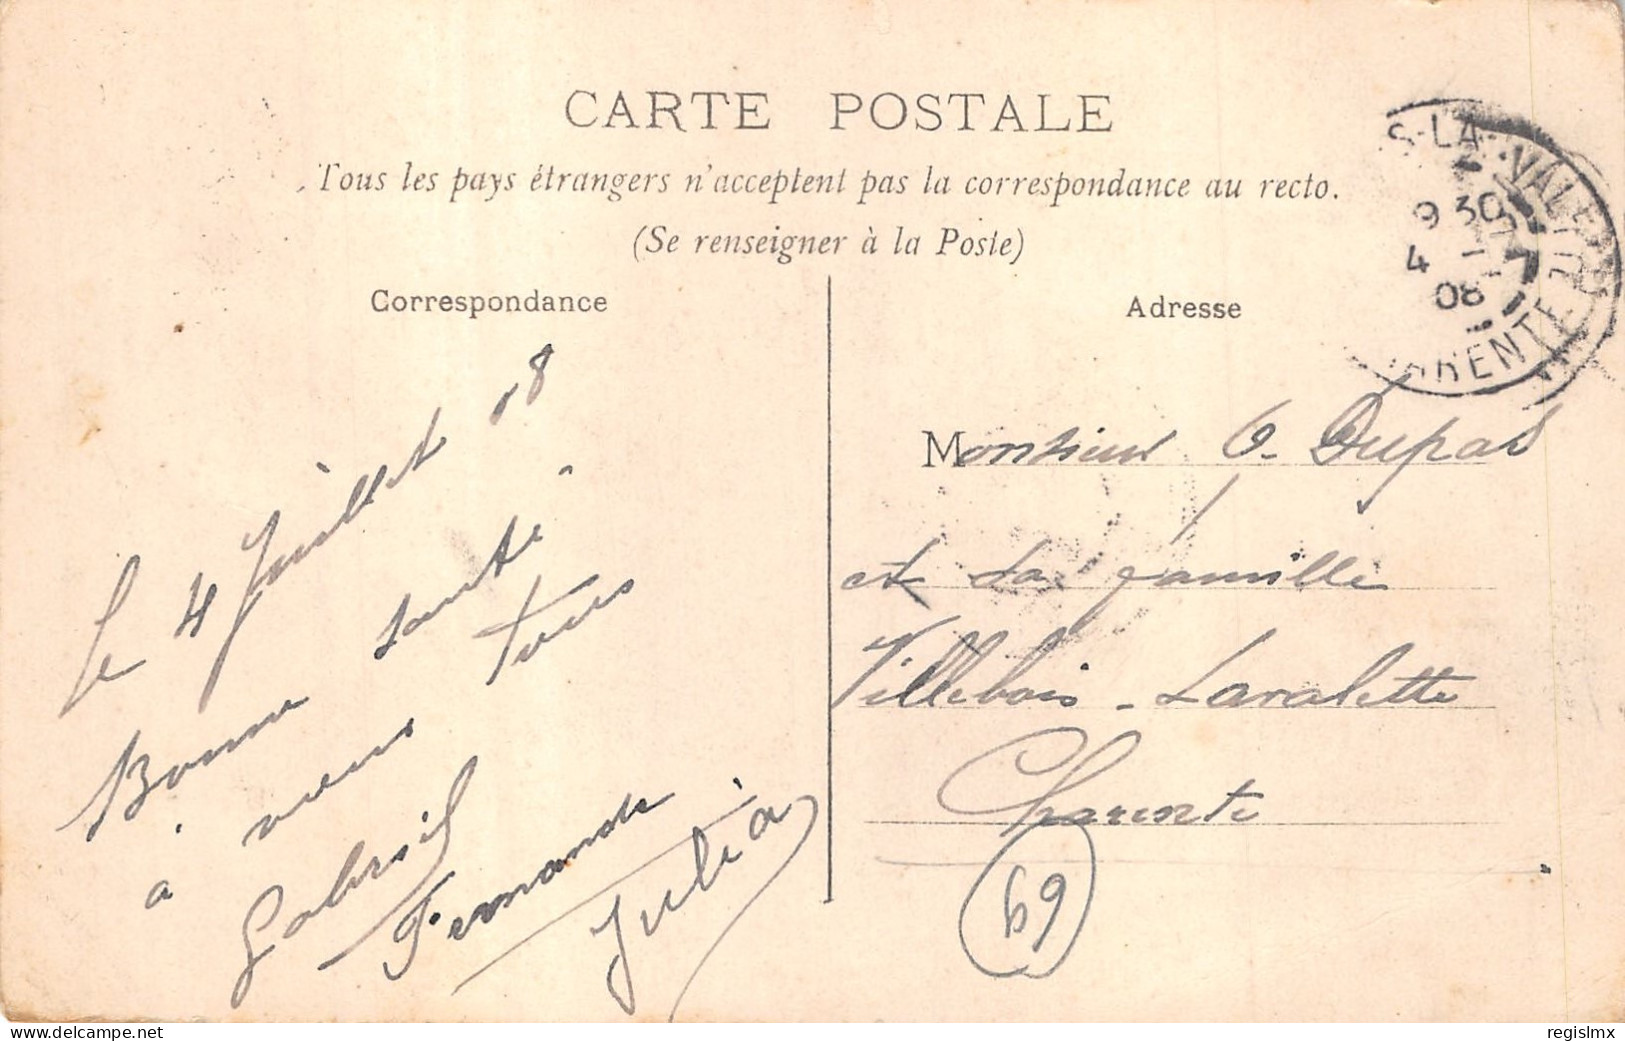 CARTE POSTALE
Tous les pays étrangers n'acceptent pas la correspondance au recto.
(Se renseigner à la Poste)
Correspondance
Le 4 Juillet 08
Bonne santé
à vous tous
Gabriel
Fernande
Julia
Adresse
S-LA-VALETTE
9 30
4 -7
08
CHARENTE
Monsieur O. Dupas
et sa famille
Villebois-Lavalette
Charente
69
delcampe.net
regislmx